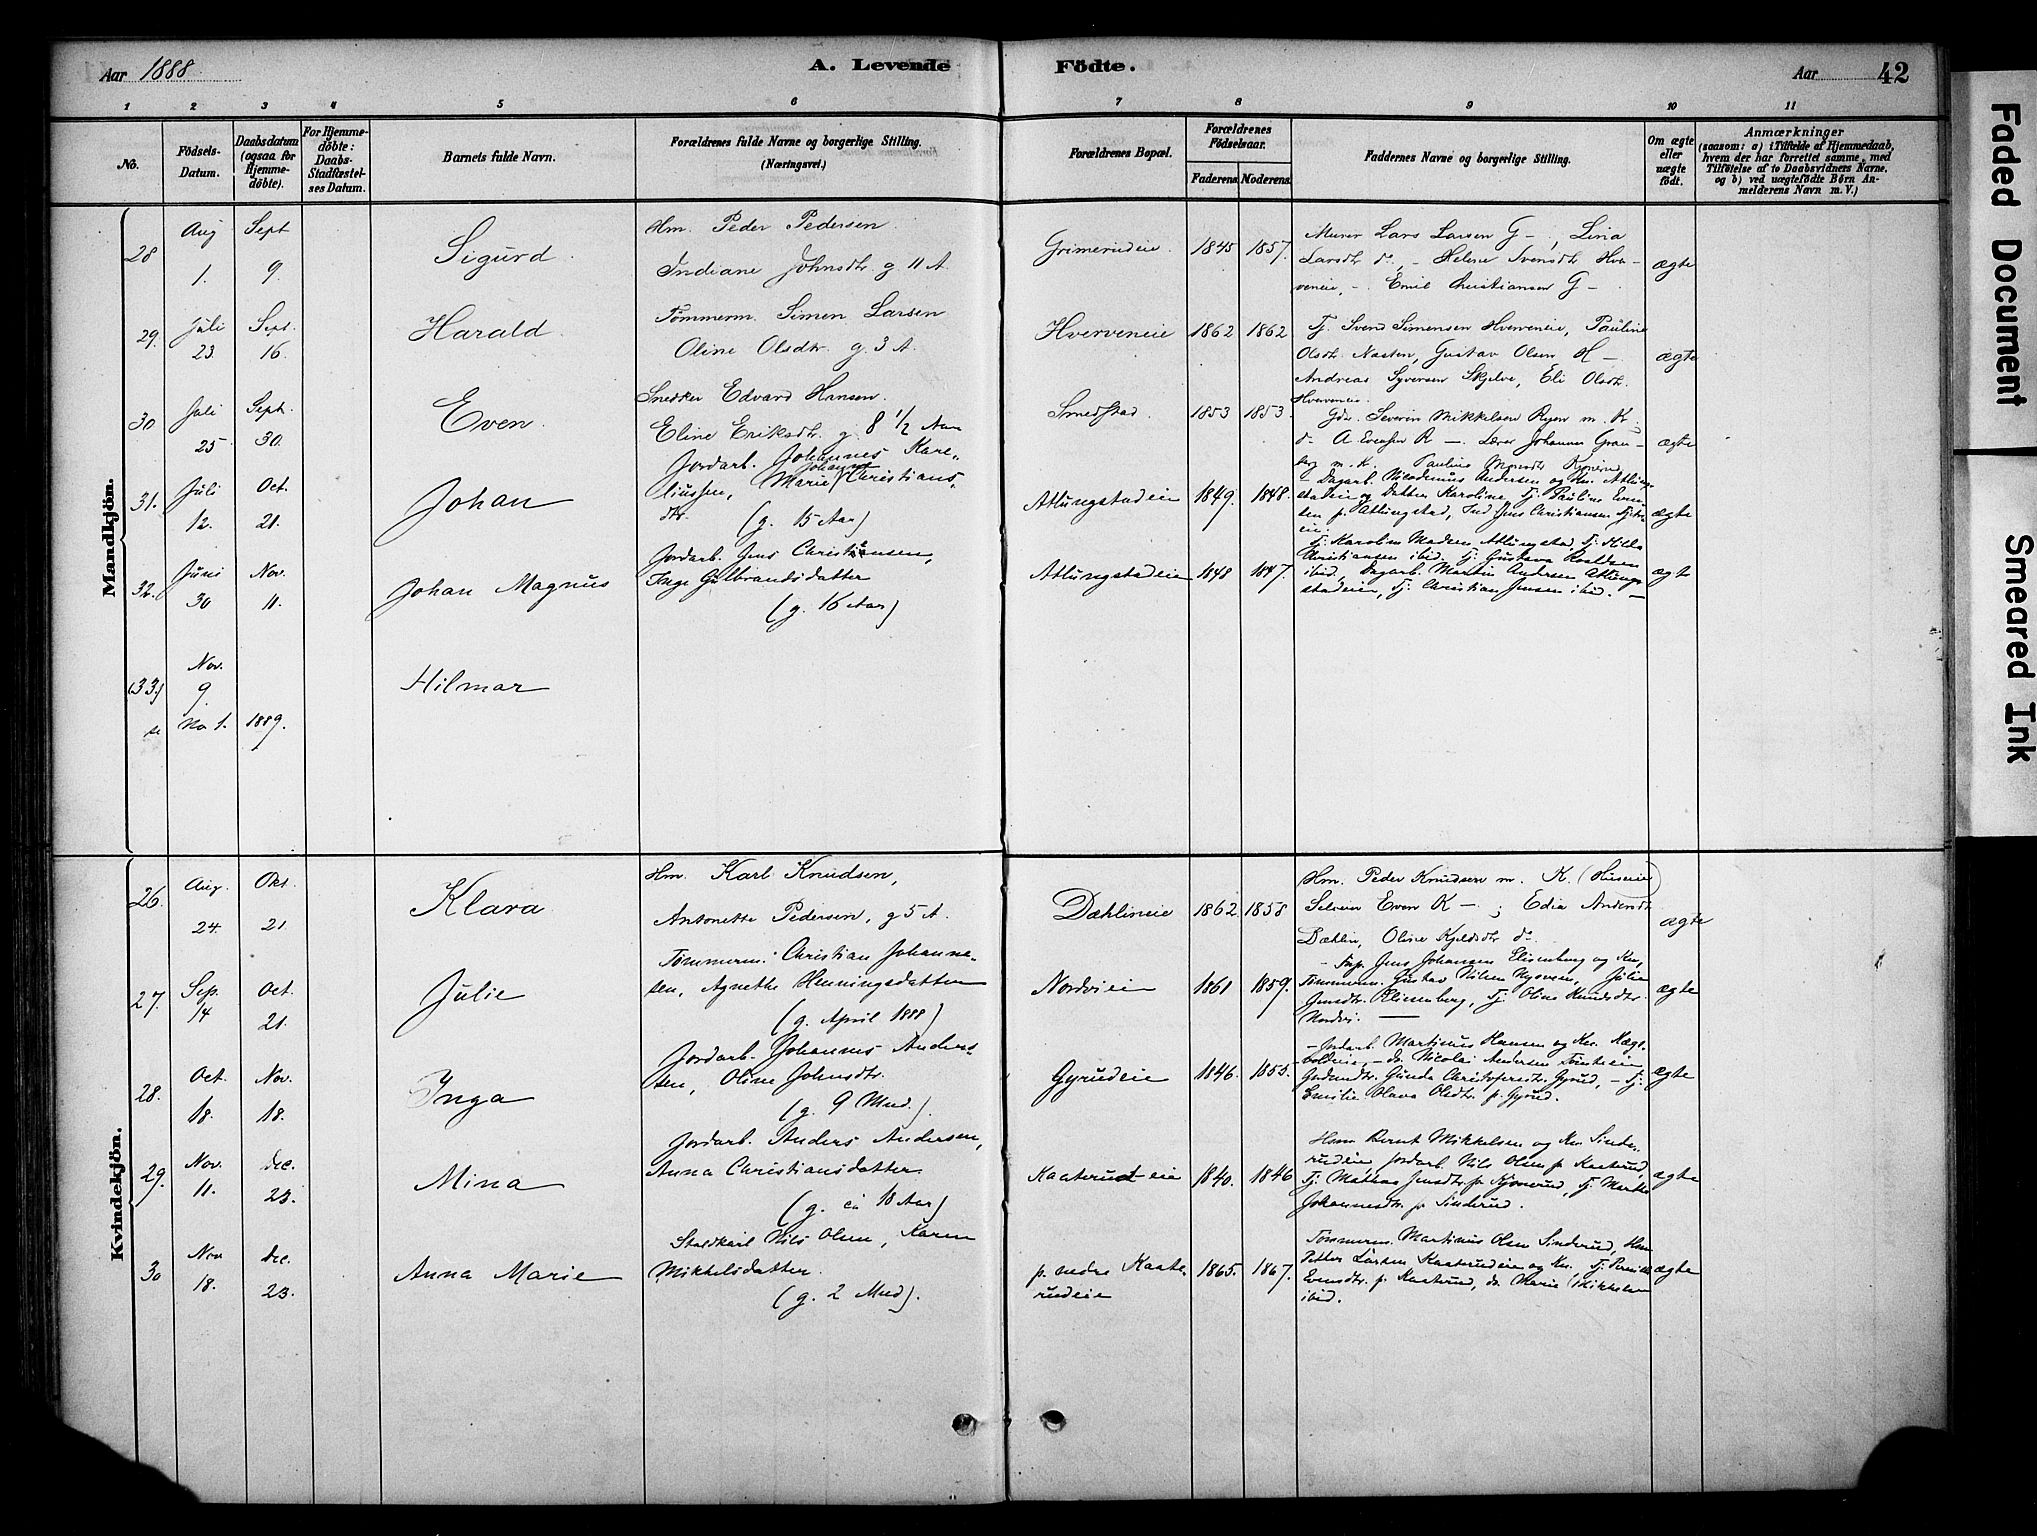 Aar 1888
A. Levende Födte.
Aar 42
1 2 3 4 5 6 7 8 9 10 11
No.
Födsels-
Datum.
Daabsdatum
(ogsaa for
Hjemme-
döbte).
For Hjemme-
döbte:
Daabs-
Stadfæstel-
ses Datum.
Barnets fulde Navn.
Forældrenes fulde Navne og borgerlige Stilling.
(Næringsvei.)
Forældrenes Bopæl.
Forældrenes
Födselsaar.
Faderens. Moderens.
Faddernes Navne og borgerlige Stilling.
Om ægte
eller
uægte
födt.
Anmærkninger
(saasom: a) i Tilfælde af Hjemmedaab,
hvem der har forrettet samme, med
Tilföielse af to Daabsvidners Navne,
og b) ved uægtefödte Börn An-
melderens Navn m. V.)
Mandkjön.
28
Aug
1.
Sept
9.
Sigurd
Hm. Peder Pedersen
Indiane Johnsdtr g. 11 A.
Grimerudeie 1845 1857.
Murer Lars Larsen G –, Lina
Larsdtr do, – Helene Svensdtr Hva-
veneie, – Emil Christiansen G –
ægte
29.
Juli
23.
Sept.
16.
Harald
Tömmerm. Simen Larsen
Oline Olsdtr. g. 3 A.
Hverveneie 1862 1862
Tj. Svend Simensen Hverveneie, Pauline
Olsdtr. Næsten, Gustav Olsen H –
Andreas Syversen Skjelve, Eli Olsdtr.
Hverveneie
ægte
30
Juli
25
Sept.
30.
Even
Snedker Edvard Hansen.
Eline Eriksdtr. g. 8 1/2 Aar
Smedstad. 1853 1853.
Gdr. Severin Mikkelsen Ryen m. K.
do A. Evensen R –. Lærer Johannes Gran-
berg m. K.
ægte
31.
Juli
12.
Oct.
21.
Johan
Jordarb. Johannes Kare-
liussen, Marie Johanne Christians-
dtr. (g. 15 Aar)
Atlungstadeie 1849. 1848.
Dagarb. Nicodemus Andersen og Kv. Atlung-
stadeie og Datter Karoline, Tj. Pauline
p. Atlungstad, Ind. Jens Christiansen
ægte
32.
Juni
30
Nov.
11.
Johan Magnus
Jordarb. Jens Christiansen,
Inge Gulbrandsdatter
(g. 16 Aar)
Atlungstadeie 1848 1847.
Tj. Karoline Madsen Atlungstad, Tj. Hilda
Christiansen ibid. Tj. Gustava
ibid, Dagarb. Martin Andersen Atlung-
stadeie, Tj. Christian Jensen ibid. –
ægte
(33.)
Nov.
9.
Hilmar
se No 1. 1889.
Kvindekjön.
26.
Aug.
24.
Okt.
21.
Klara
Hm. Karl Knudsen,
Antonette Pedersen, g 5 A.
Dæhlineie 1862 1858
Hm. Peder Knudsen m. K. (Huseeie)
Selveier Even K –; Edia Andersdtr
Dæhlin, Oline Kjeldsdtr do
ægte
27.
Sep.
14
Oct.
21.
Julie
Tömmerm. Christian Johanne-
sen, Agnethe Henningsdatter
(g. April 1888)
Nordvieie 1861 1859.
– Jens Johansen Elisenberg og Kv,
Tömmerm. Gustav Nilsen Julie
Jensdtr. Elisenberg, Tj. Oline Knudsdtr.
Nordvi. –
ægte
28.
Oct.
18.
Nov.
18.
Inga
Jordarb. Johannes Anders-
sen, Oline Johnsdtr.
(g. 9 Mnd.)
Gyrudeie 1846. 1855.
– Jordarb. Martinus Hansen og Kv.
– do Nicolai Andersen
Gunda Christofersdtr. Gyrud, – Tj.
Emilie Olava Olsdtr. p. Gyrud.
ægte
29.
Nov.
11.
Dec.
23.
Mina
Jordarb. Anders Andersen,
Anna Christiansdatter
(g. ca 18 Aar)
Kaaterudeie 1840. 1846
Hm Bernt Mikkelsen og Kv. Sinde-
rudeie Jordarb. Nils Olsen p. Kaaterud,
Tj. Mathea Jensdtr. p. Kjonerud, Tj. Marthe
Johannesdtr. p. Sinderud.
ægte
30
Nov
18.
Dec.
23.
Anna Marie
Staldkarl Nils Olsen, Karen
Mikkelsdatter.
(g. 2 Mnd).
p. nedre Kaate-
rudeie 1865. 1867.
Tömmerm. Martinus Olsen Sinderud, Hm
Petter Larsen Kaaterudeie og Kv. Tj. Pernille
Evensdtr. p. Kaaterud, do Marie Mikkelsen
ibid.
ægte
Faded Document
Smeared Ink